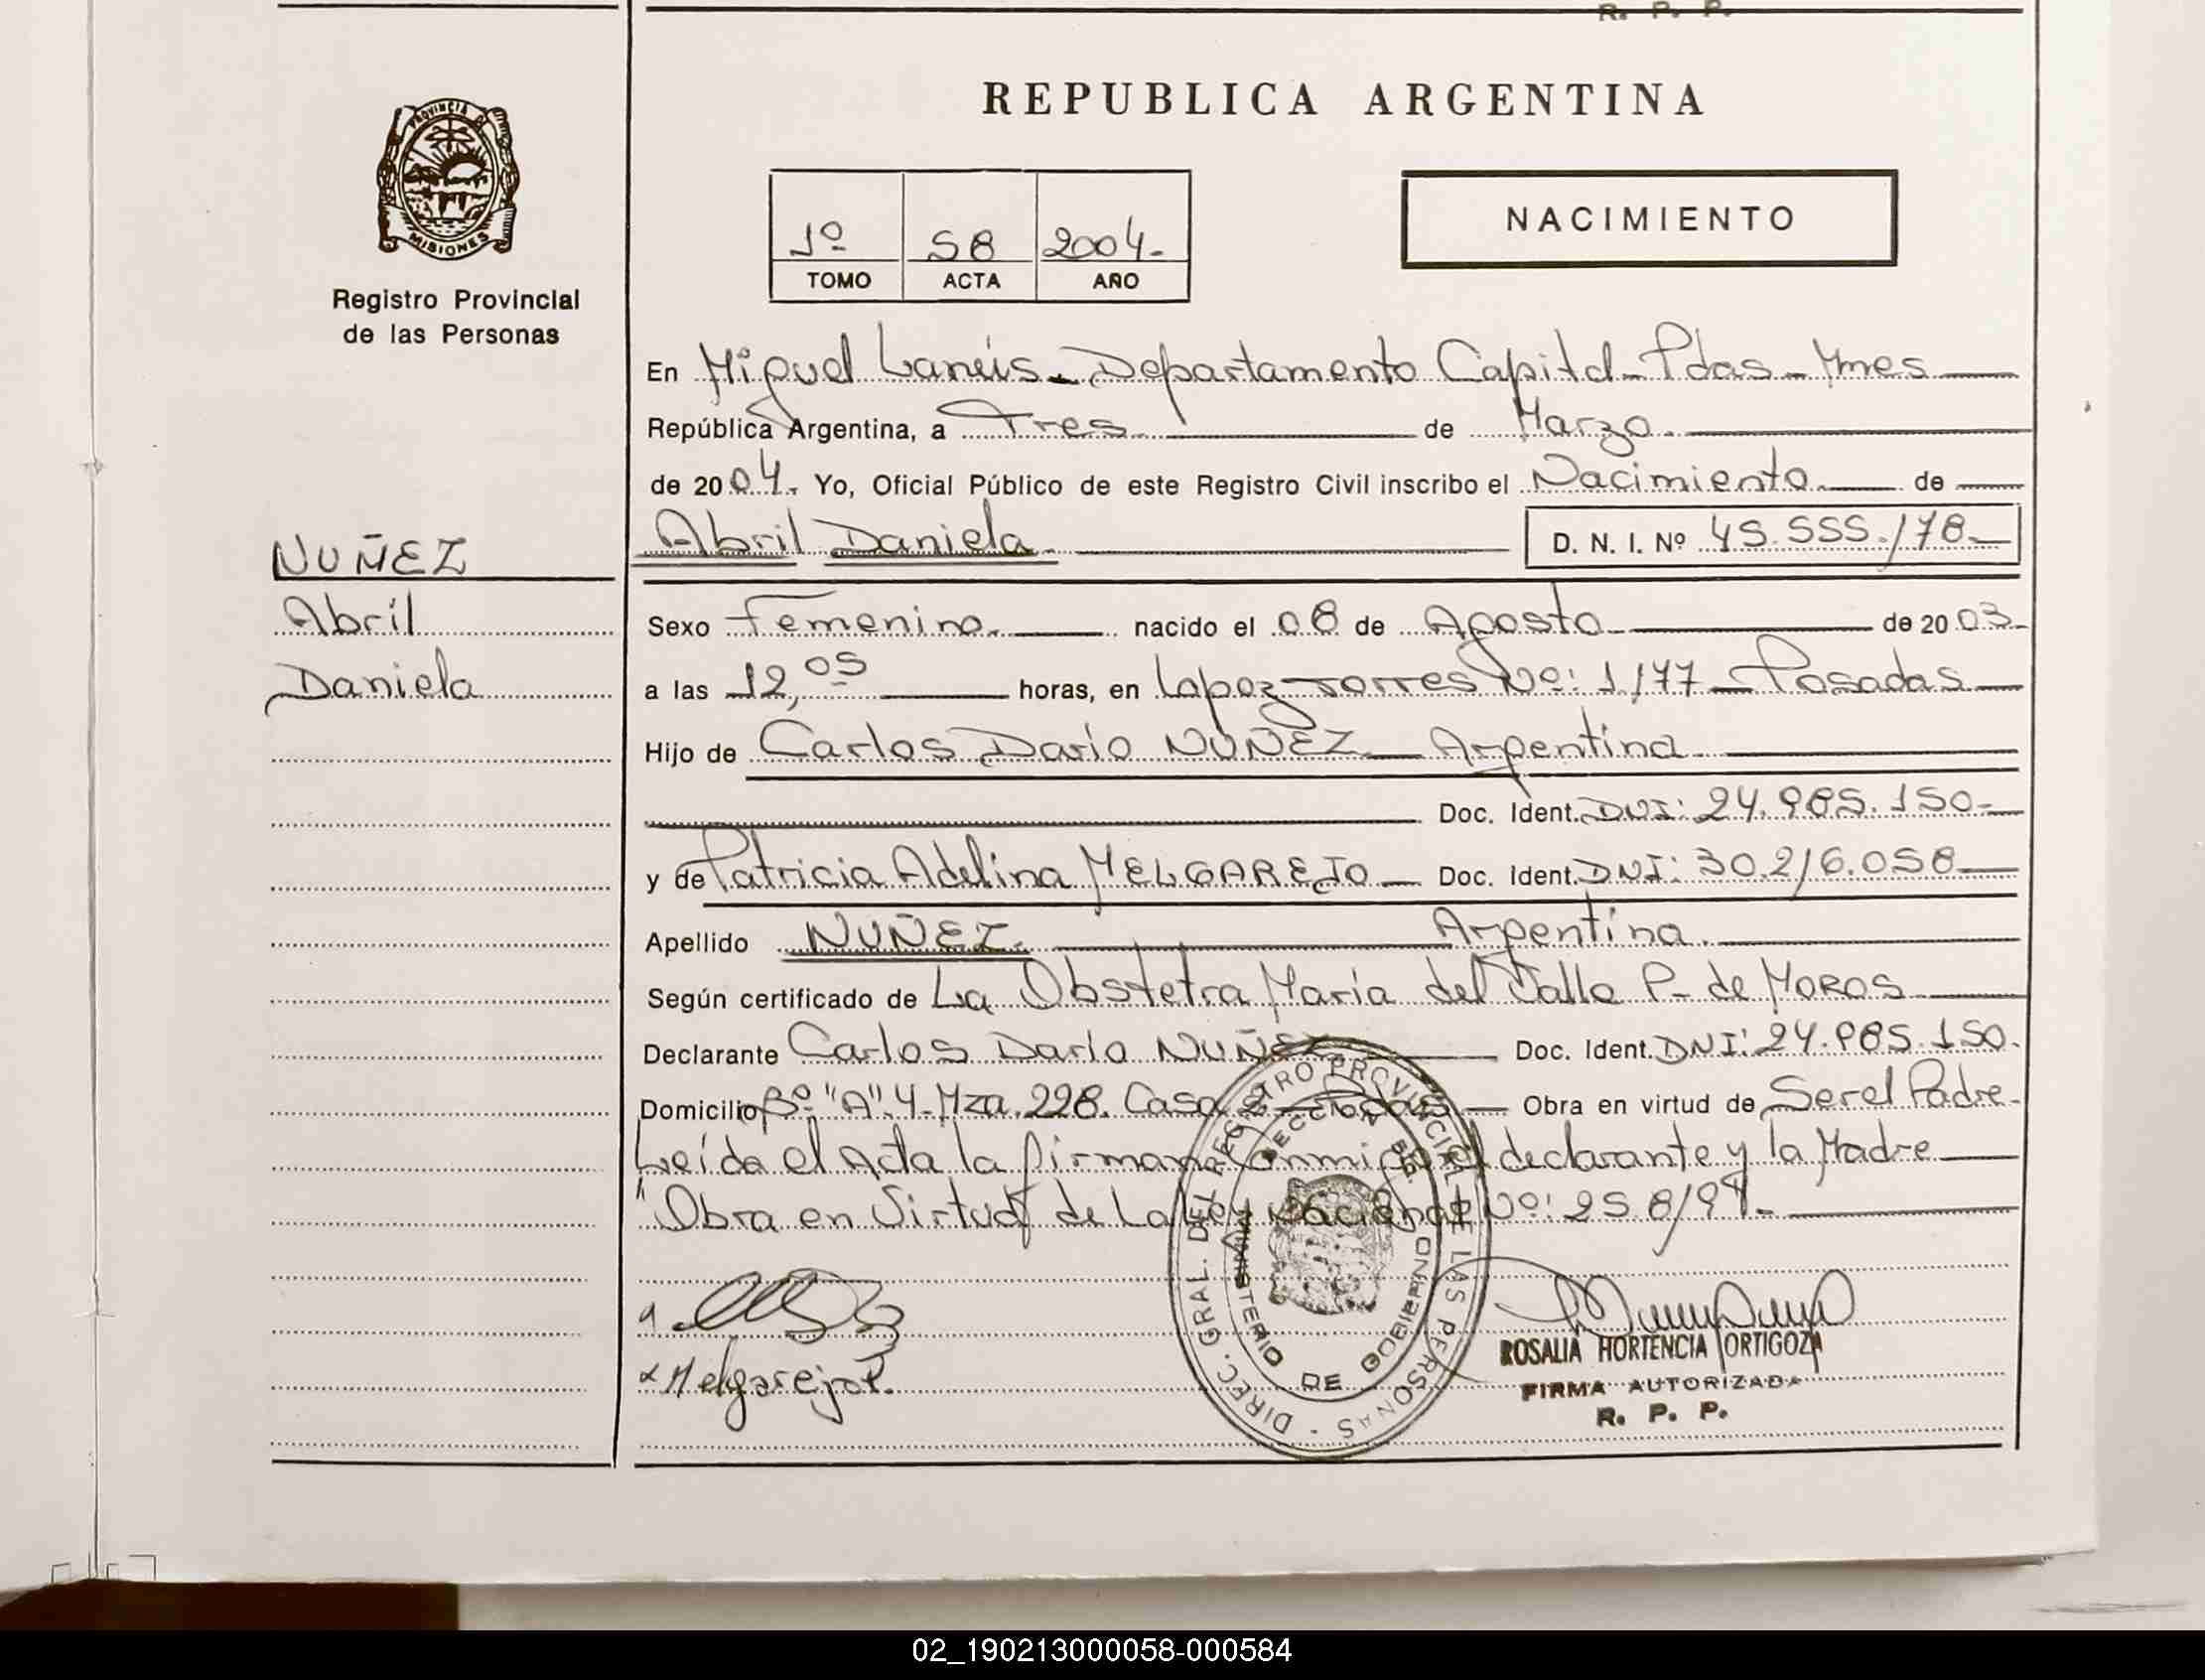 R. P. P.
PROVINCIA DE
MISIONES
Registro Provincial
de las Personas
NUÑEZ
Abril
Daniela
REPUBLICA ARGENTINA
1º 58 2004.
TOMO ACTA AÑO
NACIMIENTO
En Miguel Lanús - Departamento Capital - Pdas - Mnes
República Argentina, a Tres de Marzo
de 2004. Yo, Oficial Público de este Registro Civil inscribo el Nacimiento de
Abril Daniela D. N. I. Nº 45.555.178
Sexo Femenino. nacido el 08 de Agosto de 2003
a las 12,05 horas, en Lopez Torres Nº: 1177 - Posadas
Hijo de Carlos Dario NUÑEZ - Argentina
Doc. Ident. DNI: 24.985.150
y de Patricia Adelina MELGAREJO - Doc. Ident. DNI: 30.216.058
Apellido NUÑEZ. Argentina
Según certificado de La Obstetra María del Valle P. de MOROS
Declarante Carlos Darío NUÑEZ Doc. Ident. DNI: 24.985.150.
Domicilio Bº "A" 4 - Mza. 228. Casa Obra en virtud de Ser el Padre
Leída el Acta la firman conmigo el declarante y la Madre
"Obra en Virtud de La Ley Nacional Nº: 25.819".
Melgarejo P.
DIREC. GRAL. DEL REGISTRO PROVINCIAL DE LAS PERSONAS
MINISTERIO DE GOBIERNO
ROSALIA HORTENCIA ORTIGOZA
FIRMA AUTORIZADA
R. P. P.
02_190213000058-000584